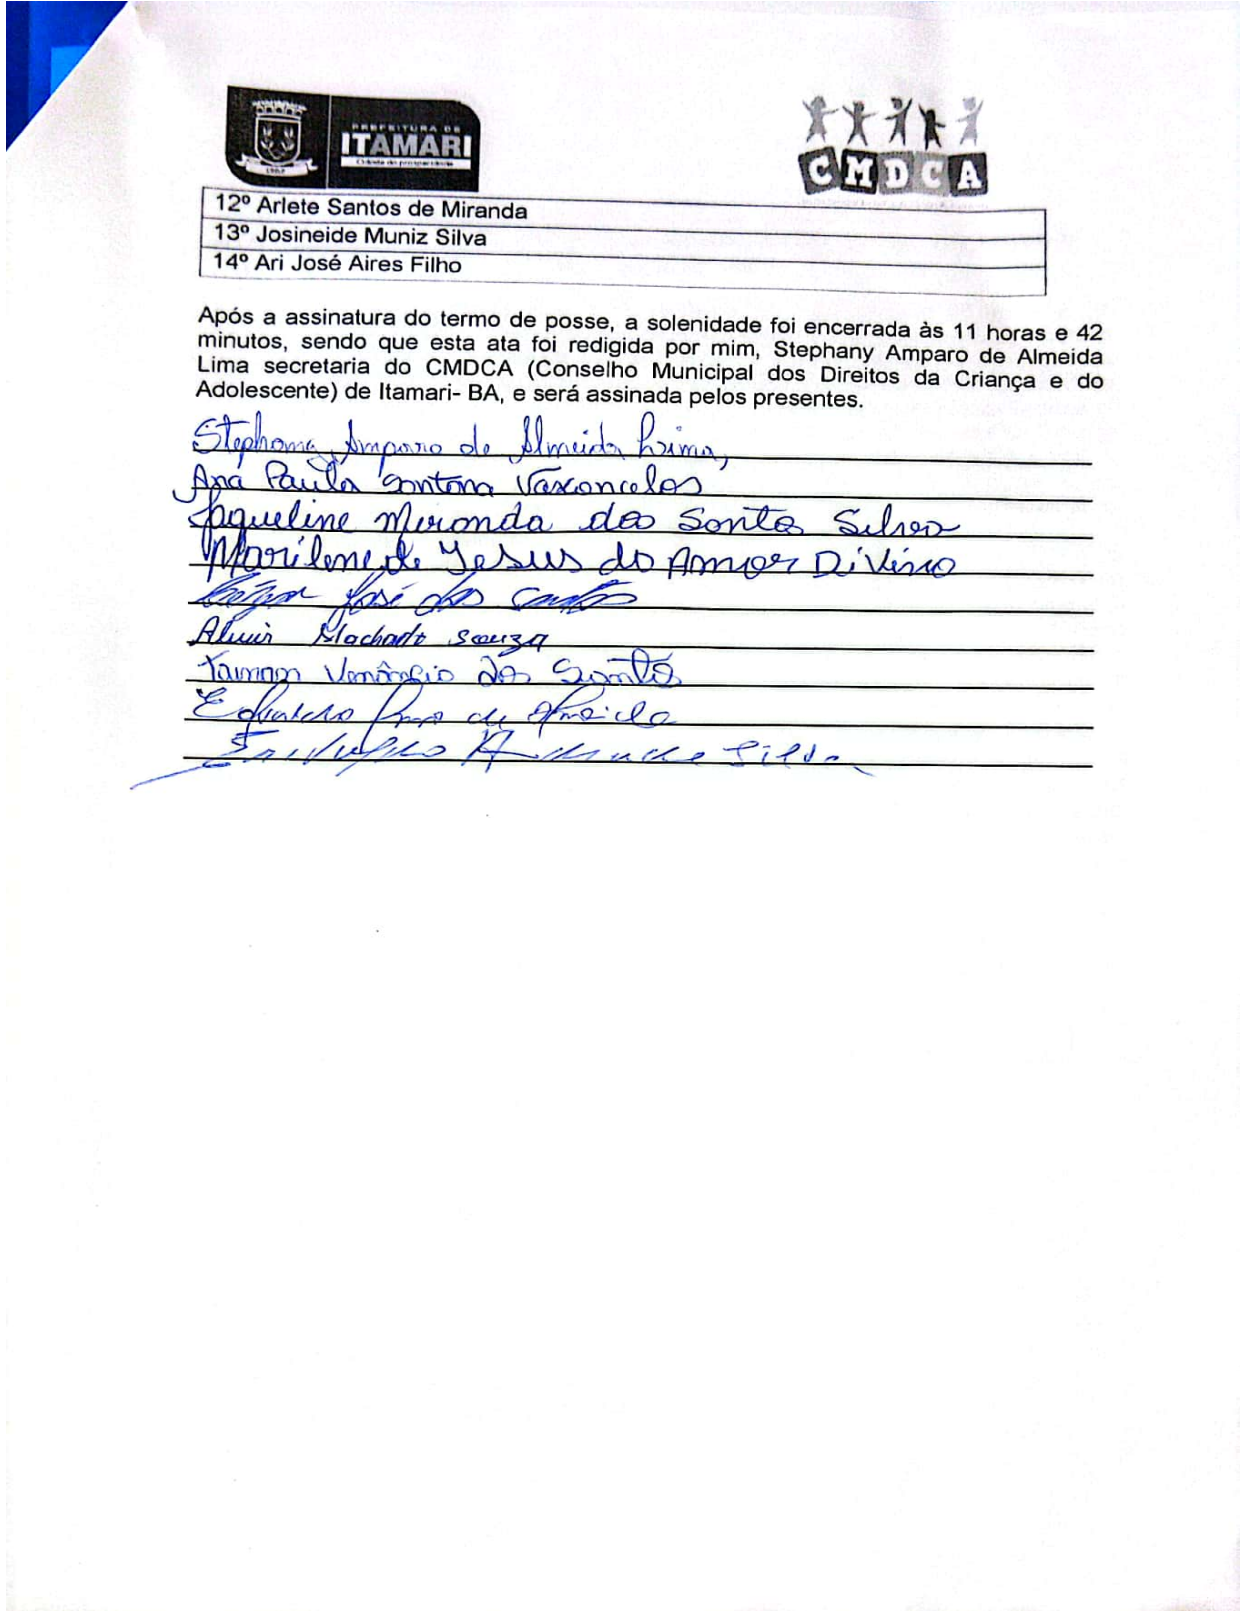 PREFEITURA DE
ITAMARI
Cidade da prosperidade
CMDCA
12º Arlete Santos de Miranda
13º Josineide Muniz Silva
14º Ari José Aires Filho
Após a assinatura do termo de posse, a solenidade foi encerrada às 11 horas e 42
minutos, sendo que esta ata foi redigida por mim, Stephany Amparo de Almeida
Lima secretaria do CMDCA (Conselho Municipal dos Direitos da Criança e do
Adolescente) de Itamari- BA, e será assinada pelos presentes.
Stephany Amparo de Almeida Lima,
Ana Paula Santana Vasconcelos
Jaqueline Miranda dos Santos Silva
Marilene de Jesus do Amor Divino
José dos Santos
Machado Souza
Venâncio dos Santos
de Almeida
Silva